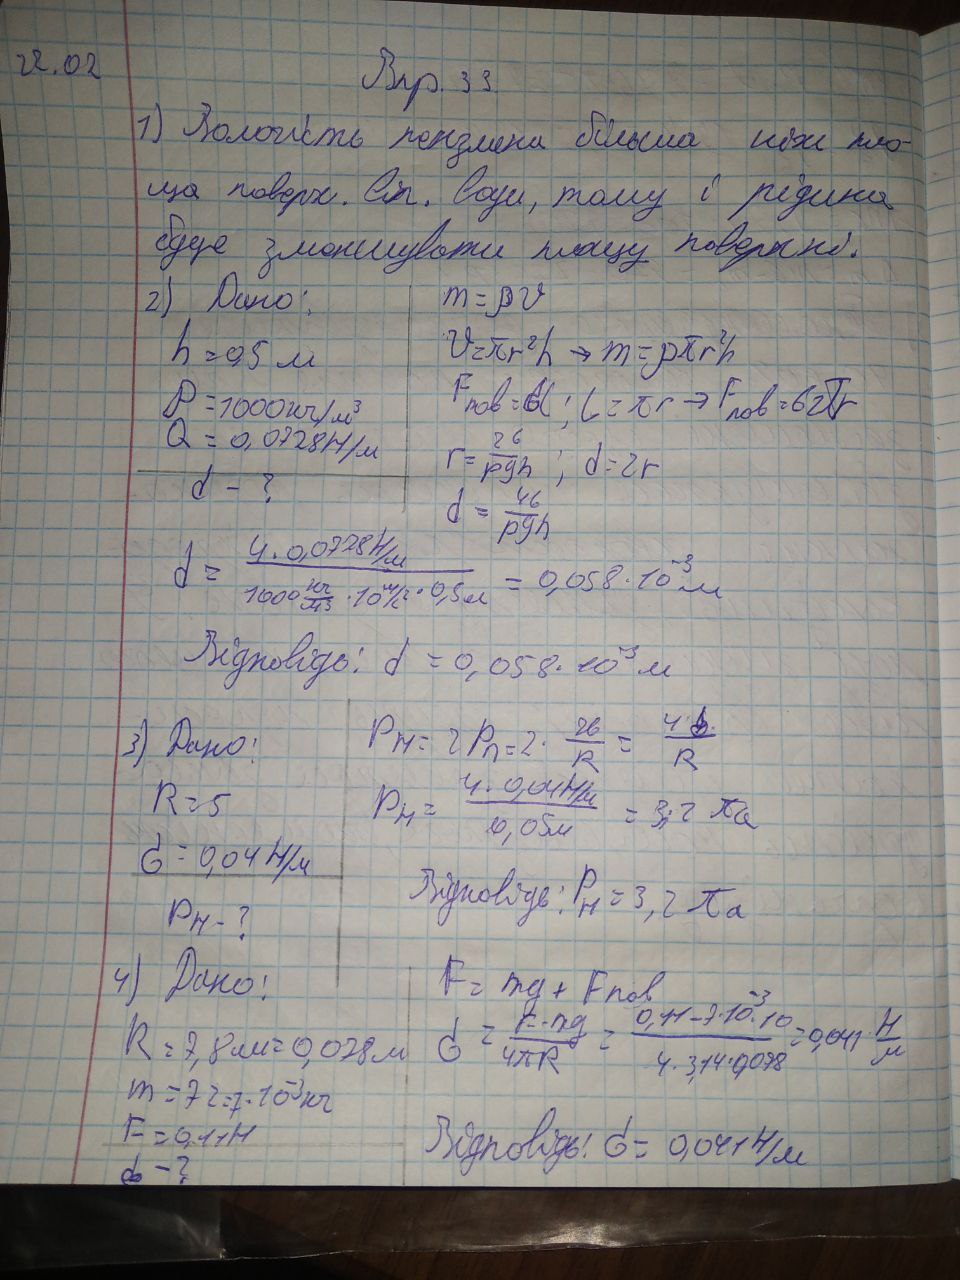 22.02
Впр. 33.
1) Вологість пензлика більша ніж пло-
ща поверх. віл. води, тому і рідина
буде зменшувати площу поверхні.
2) Дано:
h = 0,5 м
ρ = 1000 кг/м³
Q = 0,0728 Н/м
d - ?
m = ρV
V = πr²h → m = ρπr²h
Fпов = σl; l = πr → Fпов = σ2πr
r = 2σ/ρgh; d = 2r
d = 4σ/ρgh
d = 4·0,0728 Н/м / 1000 кг/м³ · 10 м/с² · 0,5 м = 0,058·10⁻³ м
Відповідь: d = 0,058·10⁻³ м
3) Дано:
R = 5
σ = 0,04 Н/м
Pн - ?
Pн = 2Pл = 2· 2σ/R = 4σ/R
Pн = 4·0,04 Н/м / 0,05м = 3,2 Па
Відповідь: Pн = 3,2 Па
4) Дано:
R = 7,8 см = 0,078 м
m = 7 г = 7·10⁻³ кг
F = 0,11 Н
σ - ?
F = mg + Fпов
σ = F - mg / 4πR = 0,11 - 7·10⁻³·10 / 4·3,14·0,078 = 0,041 Н/м
Відповідь: σ = 0,041 Н/м